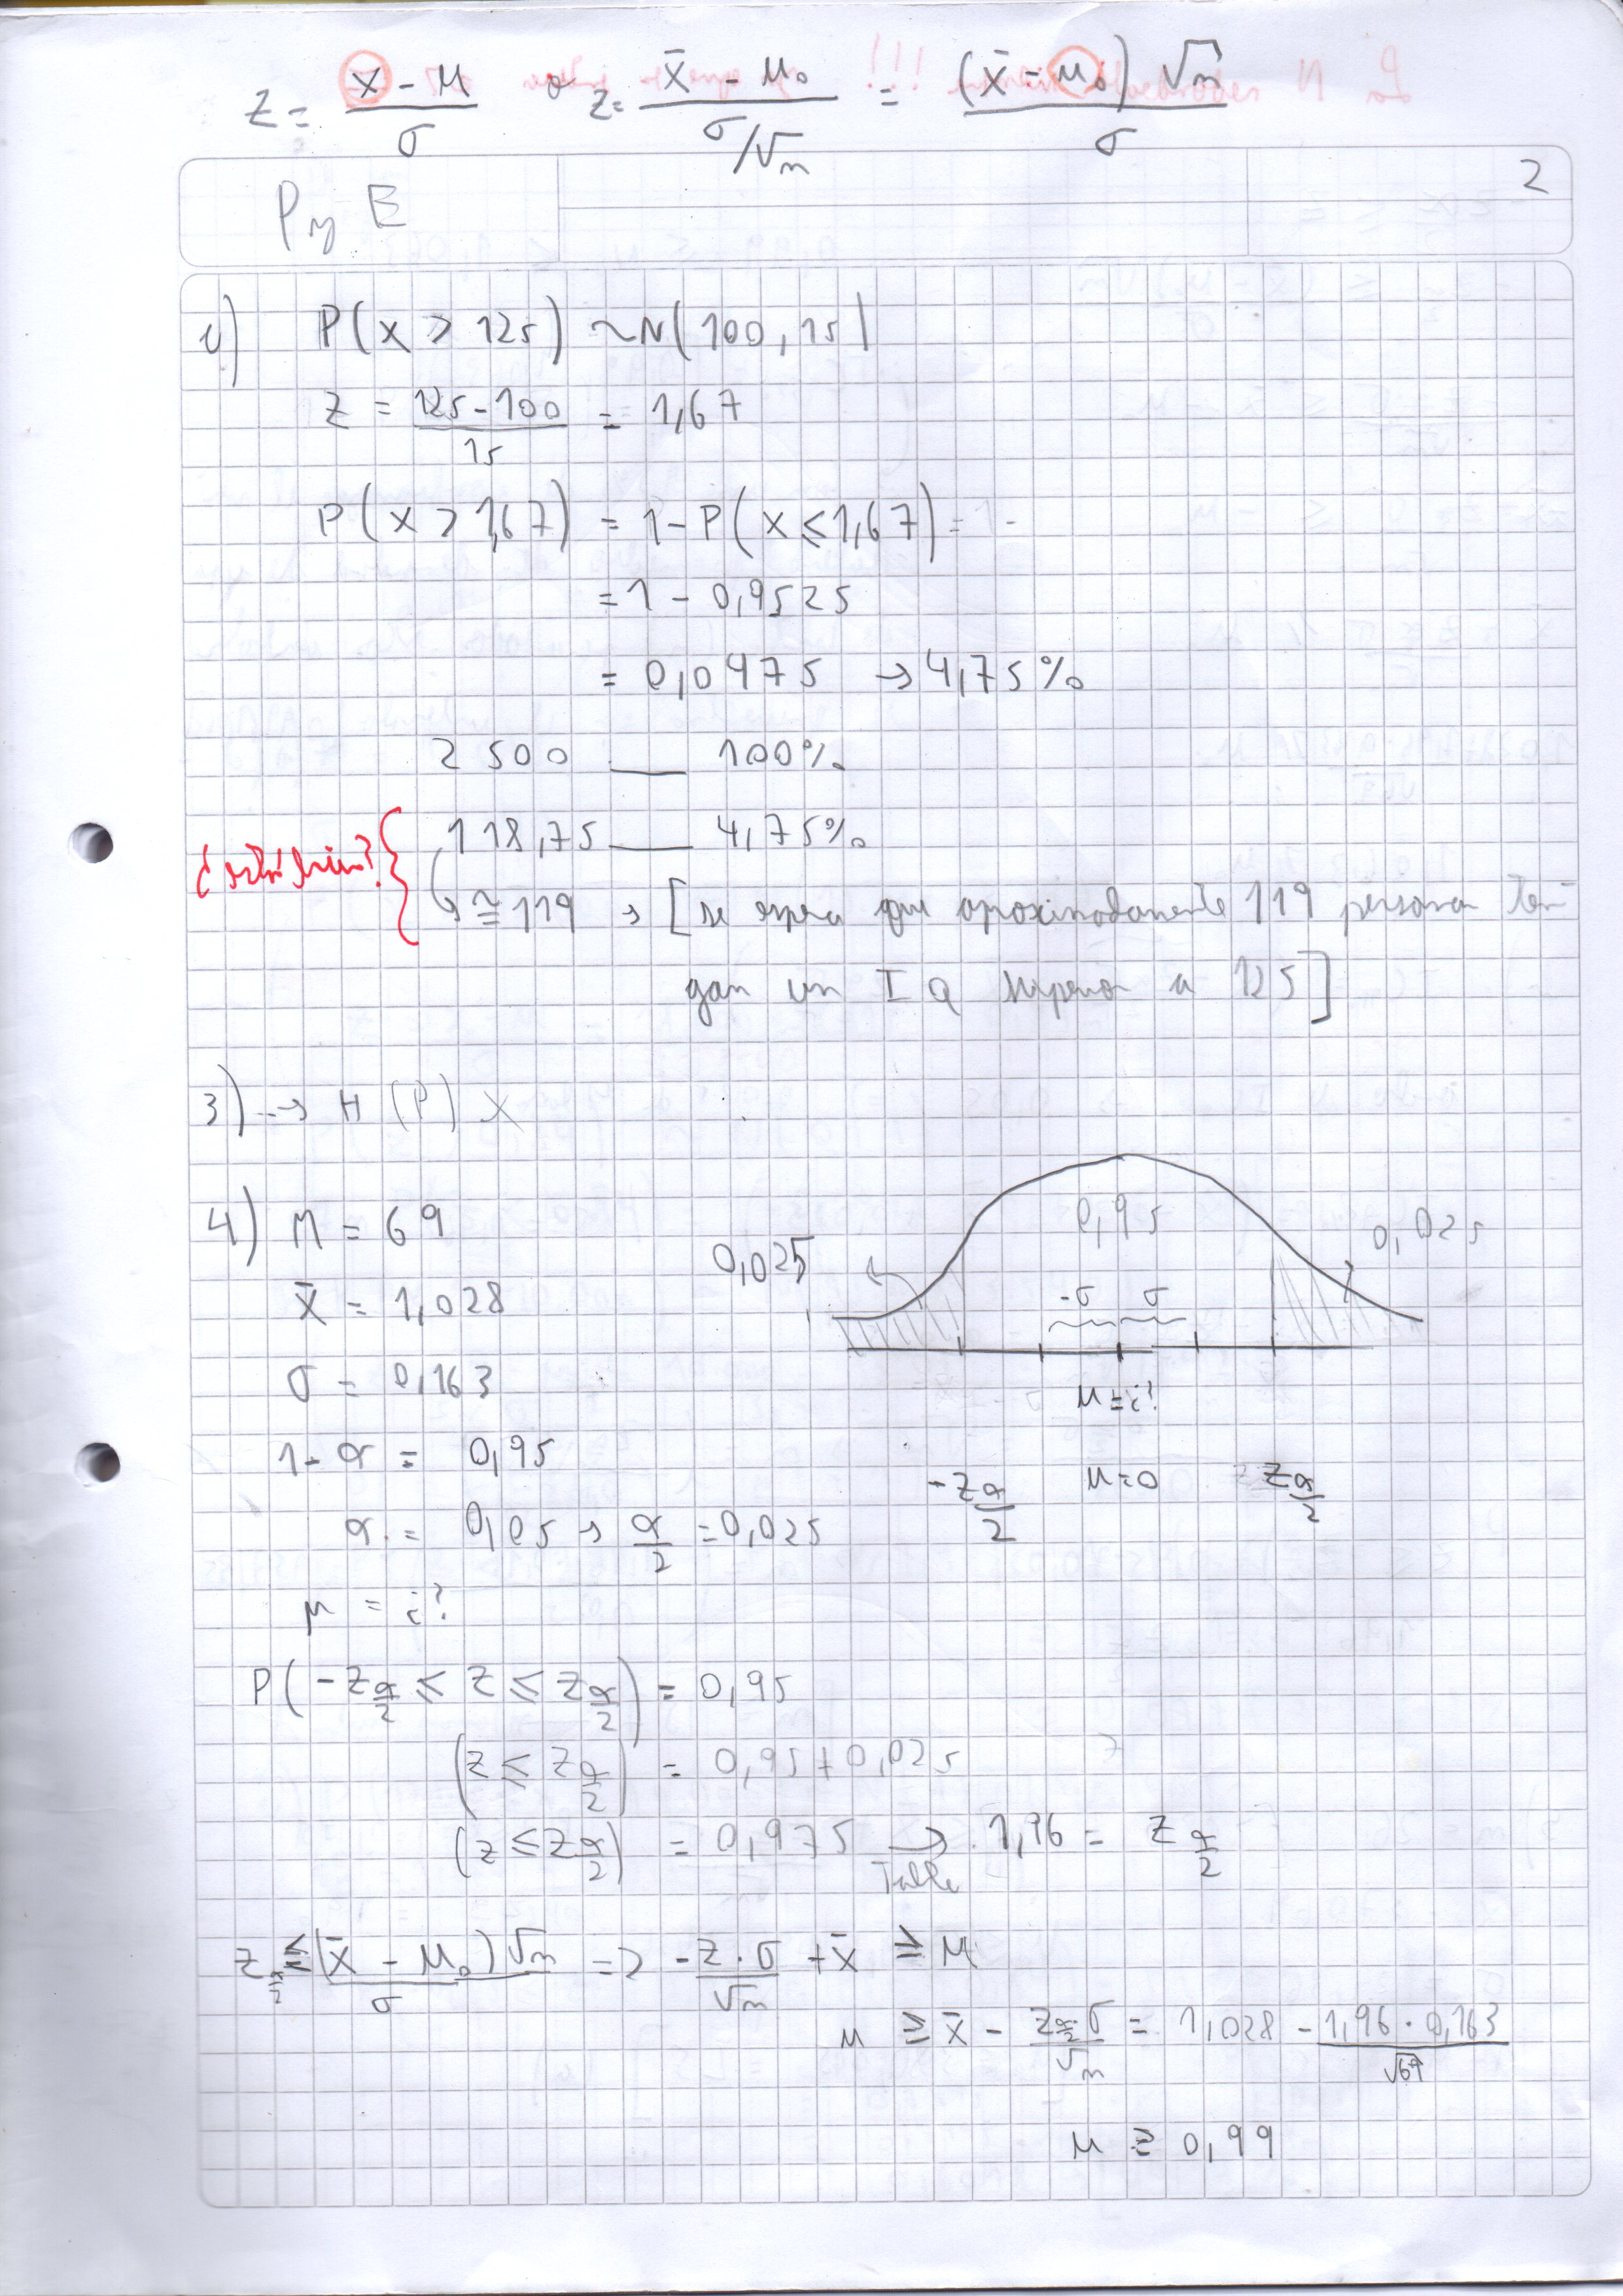 z = (x - μ)/σ o z = (x̄ - μ₀)/(σ/√n) = (x̄ - μ₀)√n/σ
P y E
2
c) P(x > 125) ~N(100, 15)
z = (125 - 100)/15 = 1,67
P(x > 1,67) = 1 - P(x ≤ 1,67) = 1 -
= 1 - 0,9525
= 0,0475 → 4,75%
2500 — 100%
118,75 — 4,75%
¿está bien?
↳ ≅ 119 → [se espera que aproximadamente 119 persona ten-
gan un IQ superior a 125]
3) --→ H (P) X
4) n = 69
x̄ = 1,028
σ = 0,163
1 - α = 0,95
α = 0,05 → α/2 = 0,025
μ = ¿?
0,025
0,95
0,025
-σ σ
μ = ¿?
-z α/2 μ = 0 z α/2
P(-z α/2 ≤ z ≤ z α/2) = 0,95
(z ≤ z α/2) = 0,95 + 0,025
(z ≤ z α/2) = 0,975 → 1,96 = z α/2
z α/2 ≤ (x̄ - μ₀)√n/σ => -z·σ/√n + x̄ ≥ μ
μ ≥ x̄ - z α/2·σ/√n = 1,028 - 1,96·0,163/√69
μ ≥ 0,99